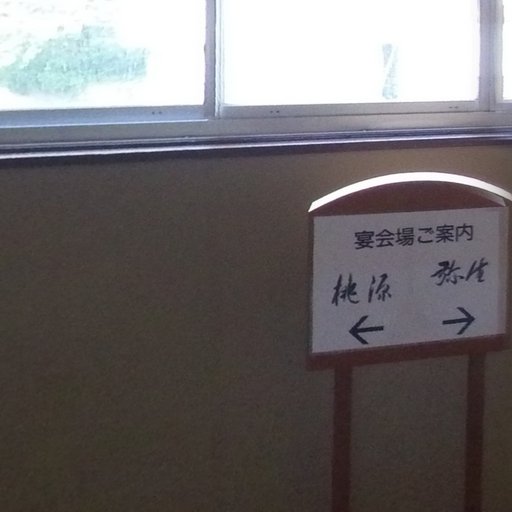 宴会場ご案内
桃源 弥生
← →